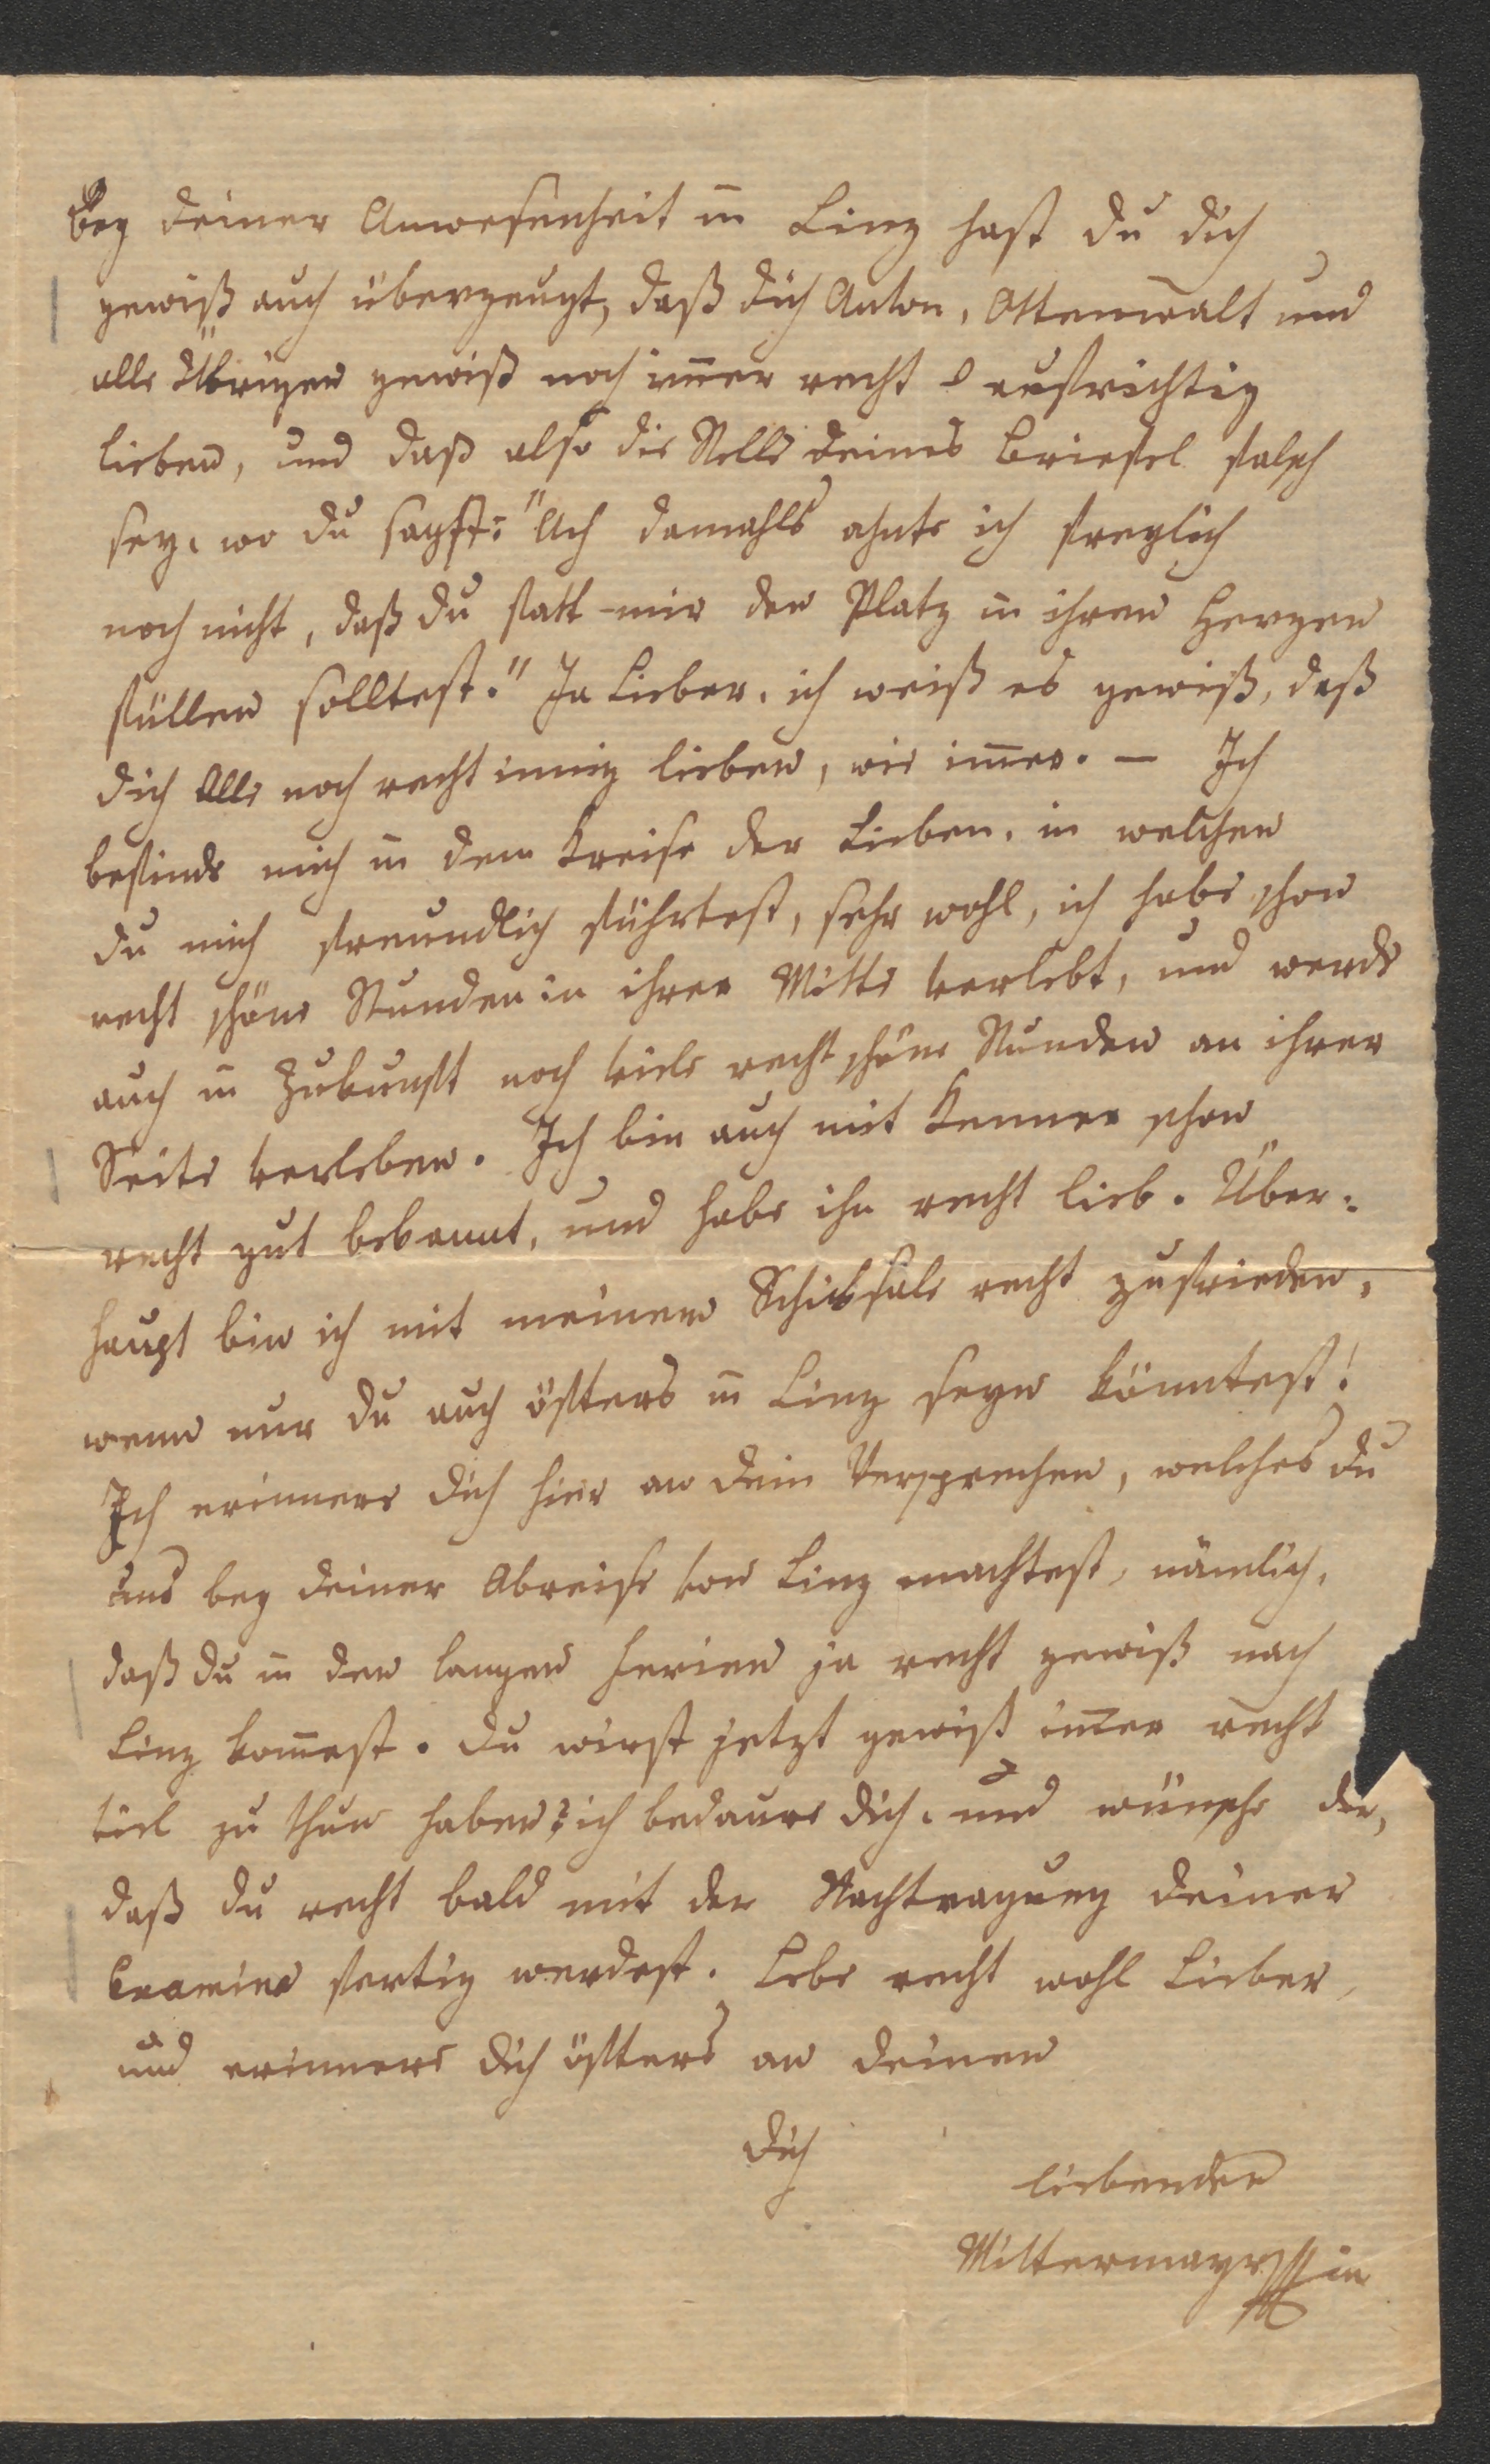 Bey deiner Anwesenheit in Linz hast du dich
gewiß auch überzeugt, daß dich Anton, Ottenwalt und
alle Übrigen gewiß noch im̅er recht aufrichtig
lieben, und daß also die Stelle deines Briefel falsch
sey, wo du sagst: "Ach damahls ahnte ich freylich
noch nicht, daß du statt mir den Platz in ihren Herzen
füllen solltest." Ja Lieber, ich weiß es gewiß, daß
dich Alle noch recht innig lieben, wie im̅er. — Ich
befinde mich in dem Kreise der Lieben, in welchen
du mich freundlich führtest, sehr wohl, ich habe schon
recht schöne Stunden in ihrer Mitte verlebt, und werde
auch in Zukunft noch viele recht schöne Stunden an ihrer
Seite verleben. Ich bin auch mit Kenner schon
recht gut bekannt, und habe ihn recht lieb. Über-
haupt bin ich mit meinem Schicksale recht zufrieden,
wenn nur du auch öfters in Linz seyn könntest!
Ich erinnere dich hier an dein Versprechen, welches du
uns bey deiner Abreise von Linz machtest, nämlich,
daß du in den langen Ferien ja recht gewiß nach
Linz kom̅est. Du wirst jetzt gewiß im̅er recht
viel zu thun haben; ich bedaure dich, und wünsche
daß du recht bald mit der Nachtragung deiner
Examina fertig werdest. Lebe recht wohl Lieber,
und erinnere dich öfters an deinen
dich
liebenden
Mittermayr